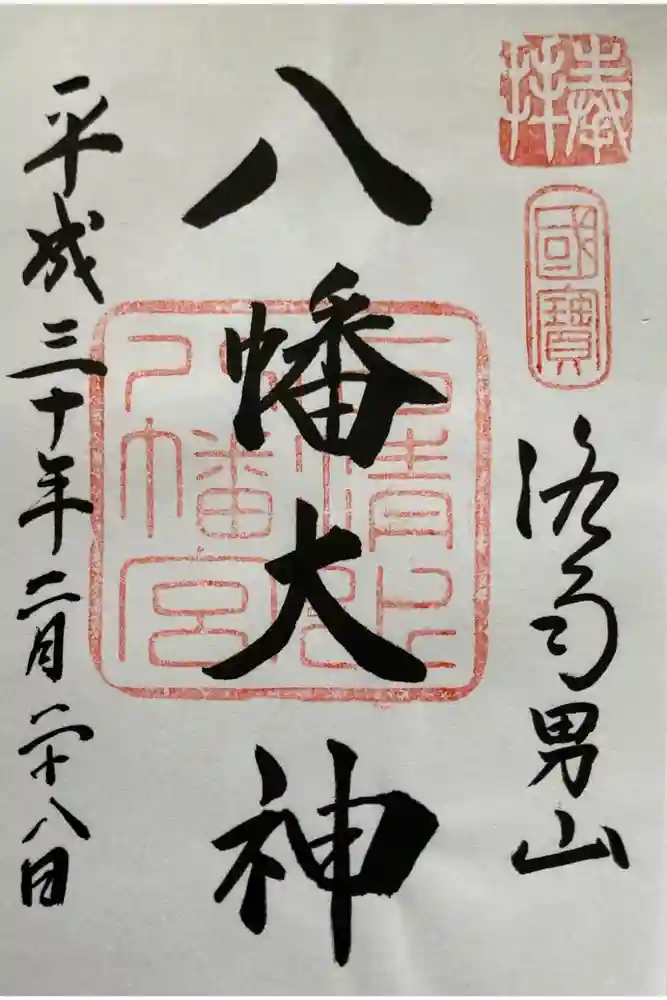 奉拝
國寶
洛南男山
八幡大神
石清水
八幡宮
平成三十年二月二十八日